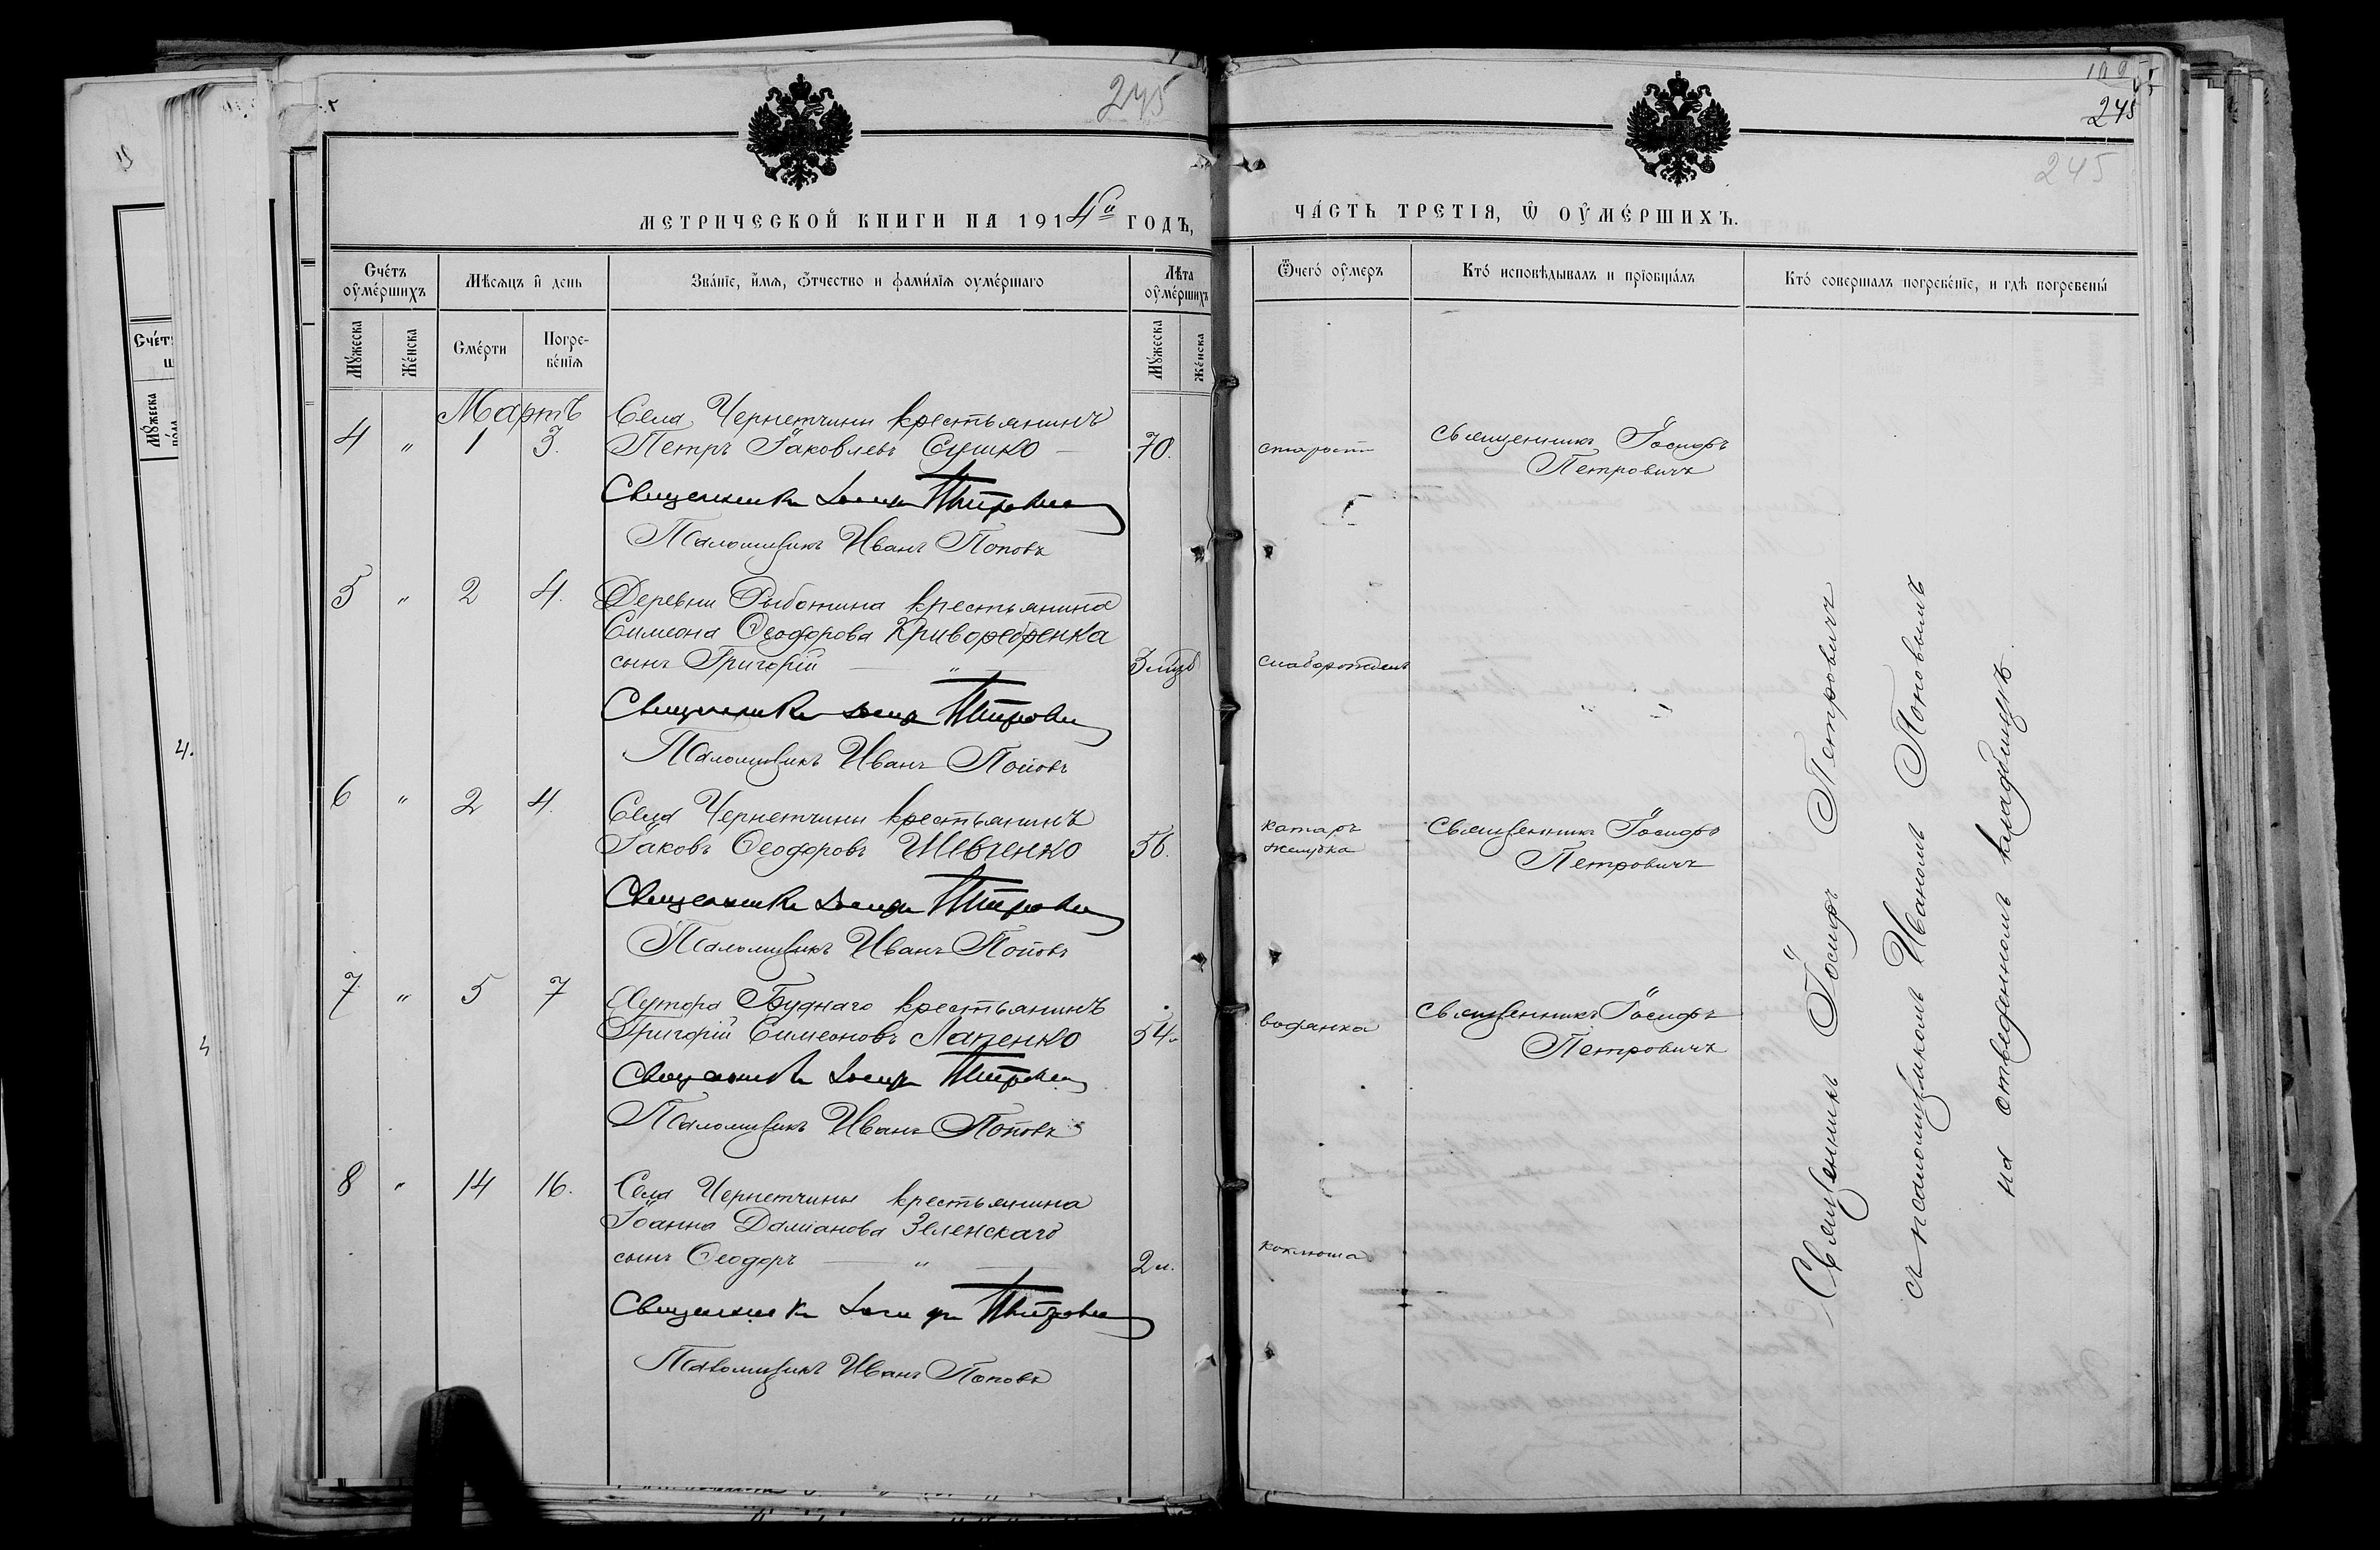 245
МЕТРИЧЕСКОЙ КНИГИ НА 1914й ГОДЪ,
Счéтъ оумéршихъ
Мѣсѧцъ и день
Звáнїе, и́мѧ, ѻ҆́тчество и фами́лїѧ оумéршаго
Лѣта оумéршихъ
Мꙋжеска
Жéнска
Смéрти
Погребéнїѧ
Мꙋжеска
Жéнска
Мартъ
4 " 1 3. Села Чернетчини крестьянинъ
Петръ Іаковлевъ Сушко — 70.
Священникъ Іосифъ Петровичъ
Псаломщикъ Иванъ Поповъ
5 " 2 4. Деревни Рыботина крестьянина
Симеона Ѳеодорова Криворебренка
сынъ Григорій — " — 3 мцѣ
Священникъ Іосифъ Петровичъ
Псаломщикъ Иванъ Поповъ
6 " 2 4. Села Чернетчини крестьянинъ
Іаковъ Ѳеодоровъ Шевченко 56.
Священникъ Іосифъ Петровичъ
Псаломщикъ Иванъ Поповъ
7 " 5 7 Хутора Буднаго крестьянинъ
Григорій Симеоновъ Лапенко 54.
Священникъ Іосифъ Петровичъ
Псаломщикъ Иванъ Поповъ
8 " 14 16. Села Чернетчины крестьянина
Іоанна Даміанова Зеленскаго
сынъ Ѳеодоръ — " — 2 м.
Священникъ Іосифъ Петровичъ
Псаломщикъ Иванъ Поповъ
245
245
ЧÁСТЬ ТРЕТІЯ, Ѿ ОУМÉРШИХЪ.
Ѿчегó оумеръ
Ктó исповѣдывалъ и прїобщáлъ
Ктó совершалъ погребéнїе, и гдѣ погребены́
старости
Священникъ Іосифъ
Петровичъ
слаборожден.
катаръ
желудка
Священникъ Іосифъ
Петровичъ
водянка
Священникъ Іосифъ
Петровичъ
коклюша
Священникъ Іосифъ Петровичъ
съ псаломщикомъ Иваномъ Поповымъ
на отведенномъ кладбищѣ.